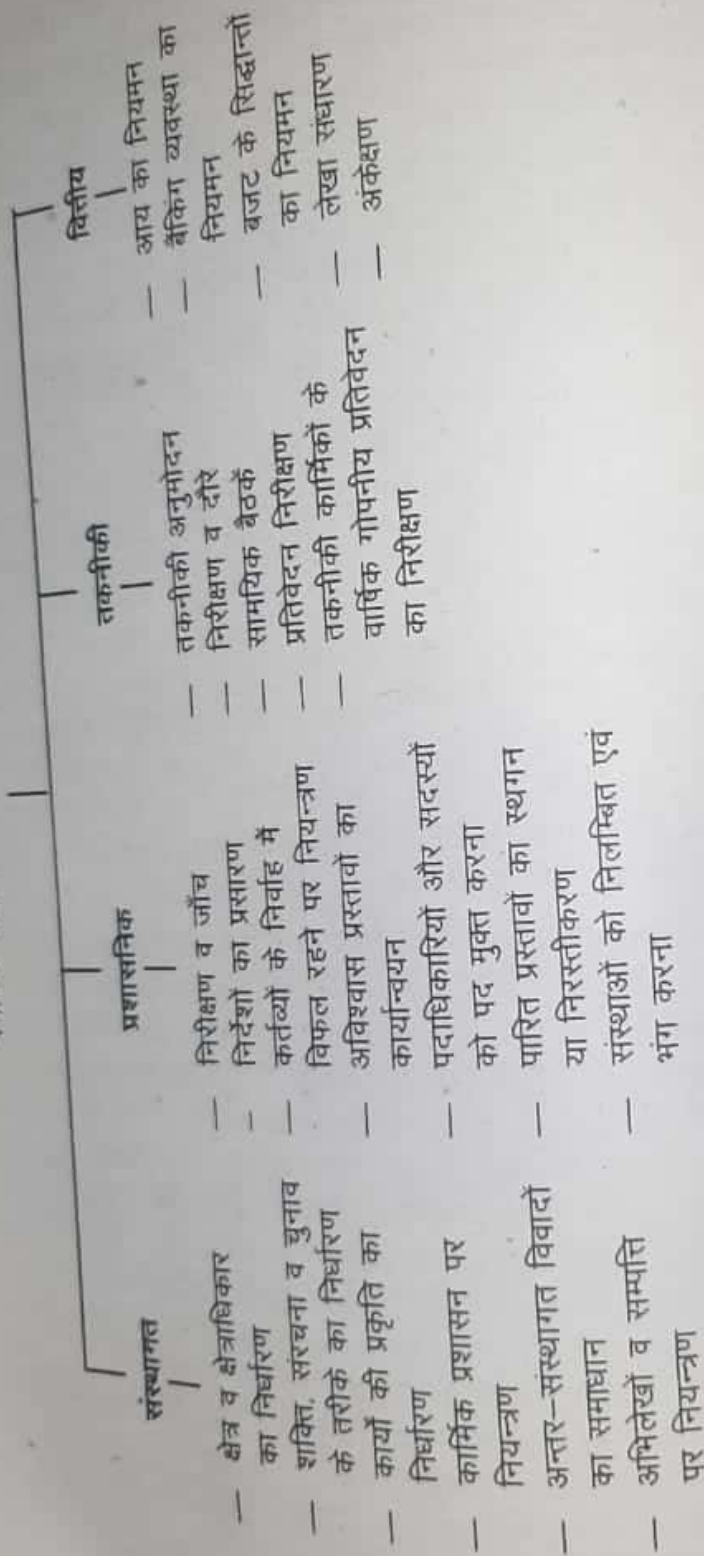 संस्थागत
— क्षेत्र व क्षेत्राधिकार
का निर्धारण
— शक्ति, संरचना व चुनाव
के तरीके का निर्धारण
— कार्यों की प्रकृति का
निर्धारण
— कार्मिक प्रशासन पर
नियन्त्रण
— अन्तर-संस्थागत विवादों
का समाधान
— अभिलेखों व सम्पत्ति
पर नियन्त्रण
प्रशासनिक
— निरीक्षण व जाँच
– निर्देशों का प्रसारण
— कर्तव्यों के निर्वाह में
विफल रहने पर नियन्त्रण
— अविश्वास प्रस्तावों का
कार्यान्वयन
— पदाधिकारियों और सदस्यों
को पद मुक्त करना
— पारित प्रस्तावों का स्थगन
या निरस्तीकरण
— संस्थाओं को निलम्बित एवं
भंग करना
तकनीकी
— तकनीकी अनुमोदन
— निरीक्षण व दौरे
— सामयिक बैठकें
— प्रतिवेदन निरीक्षण
— तकनीकी कार्मिकों के
वार्षिक गोपनीय प्रतिवेदन
का निरीक्षण
वित्तीय
— आय का नियमन
— बैंकिंग व्यवस्था का
नियमन
— बजट के सिद्धान्तों
का नियमन
— लेखा संधारण
— अंकेक्षण